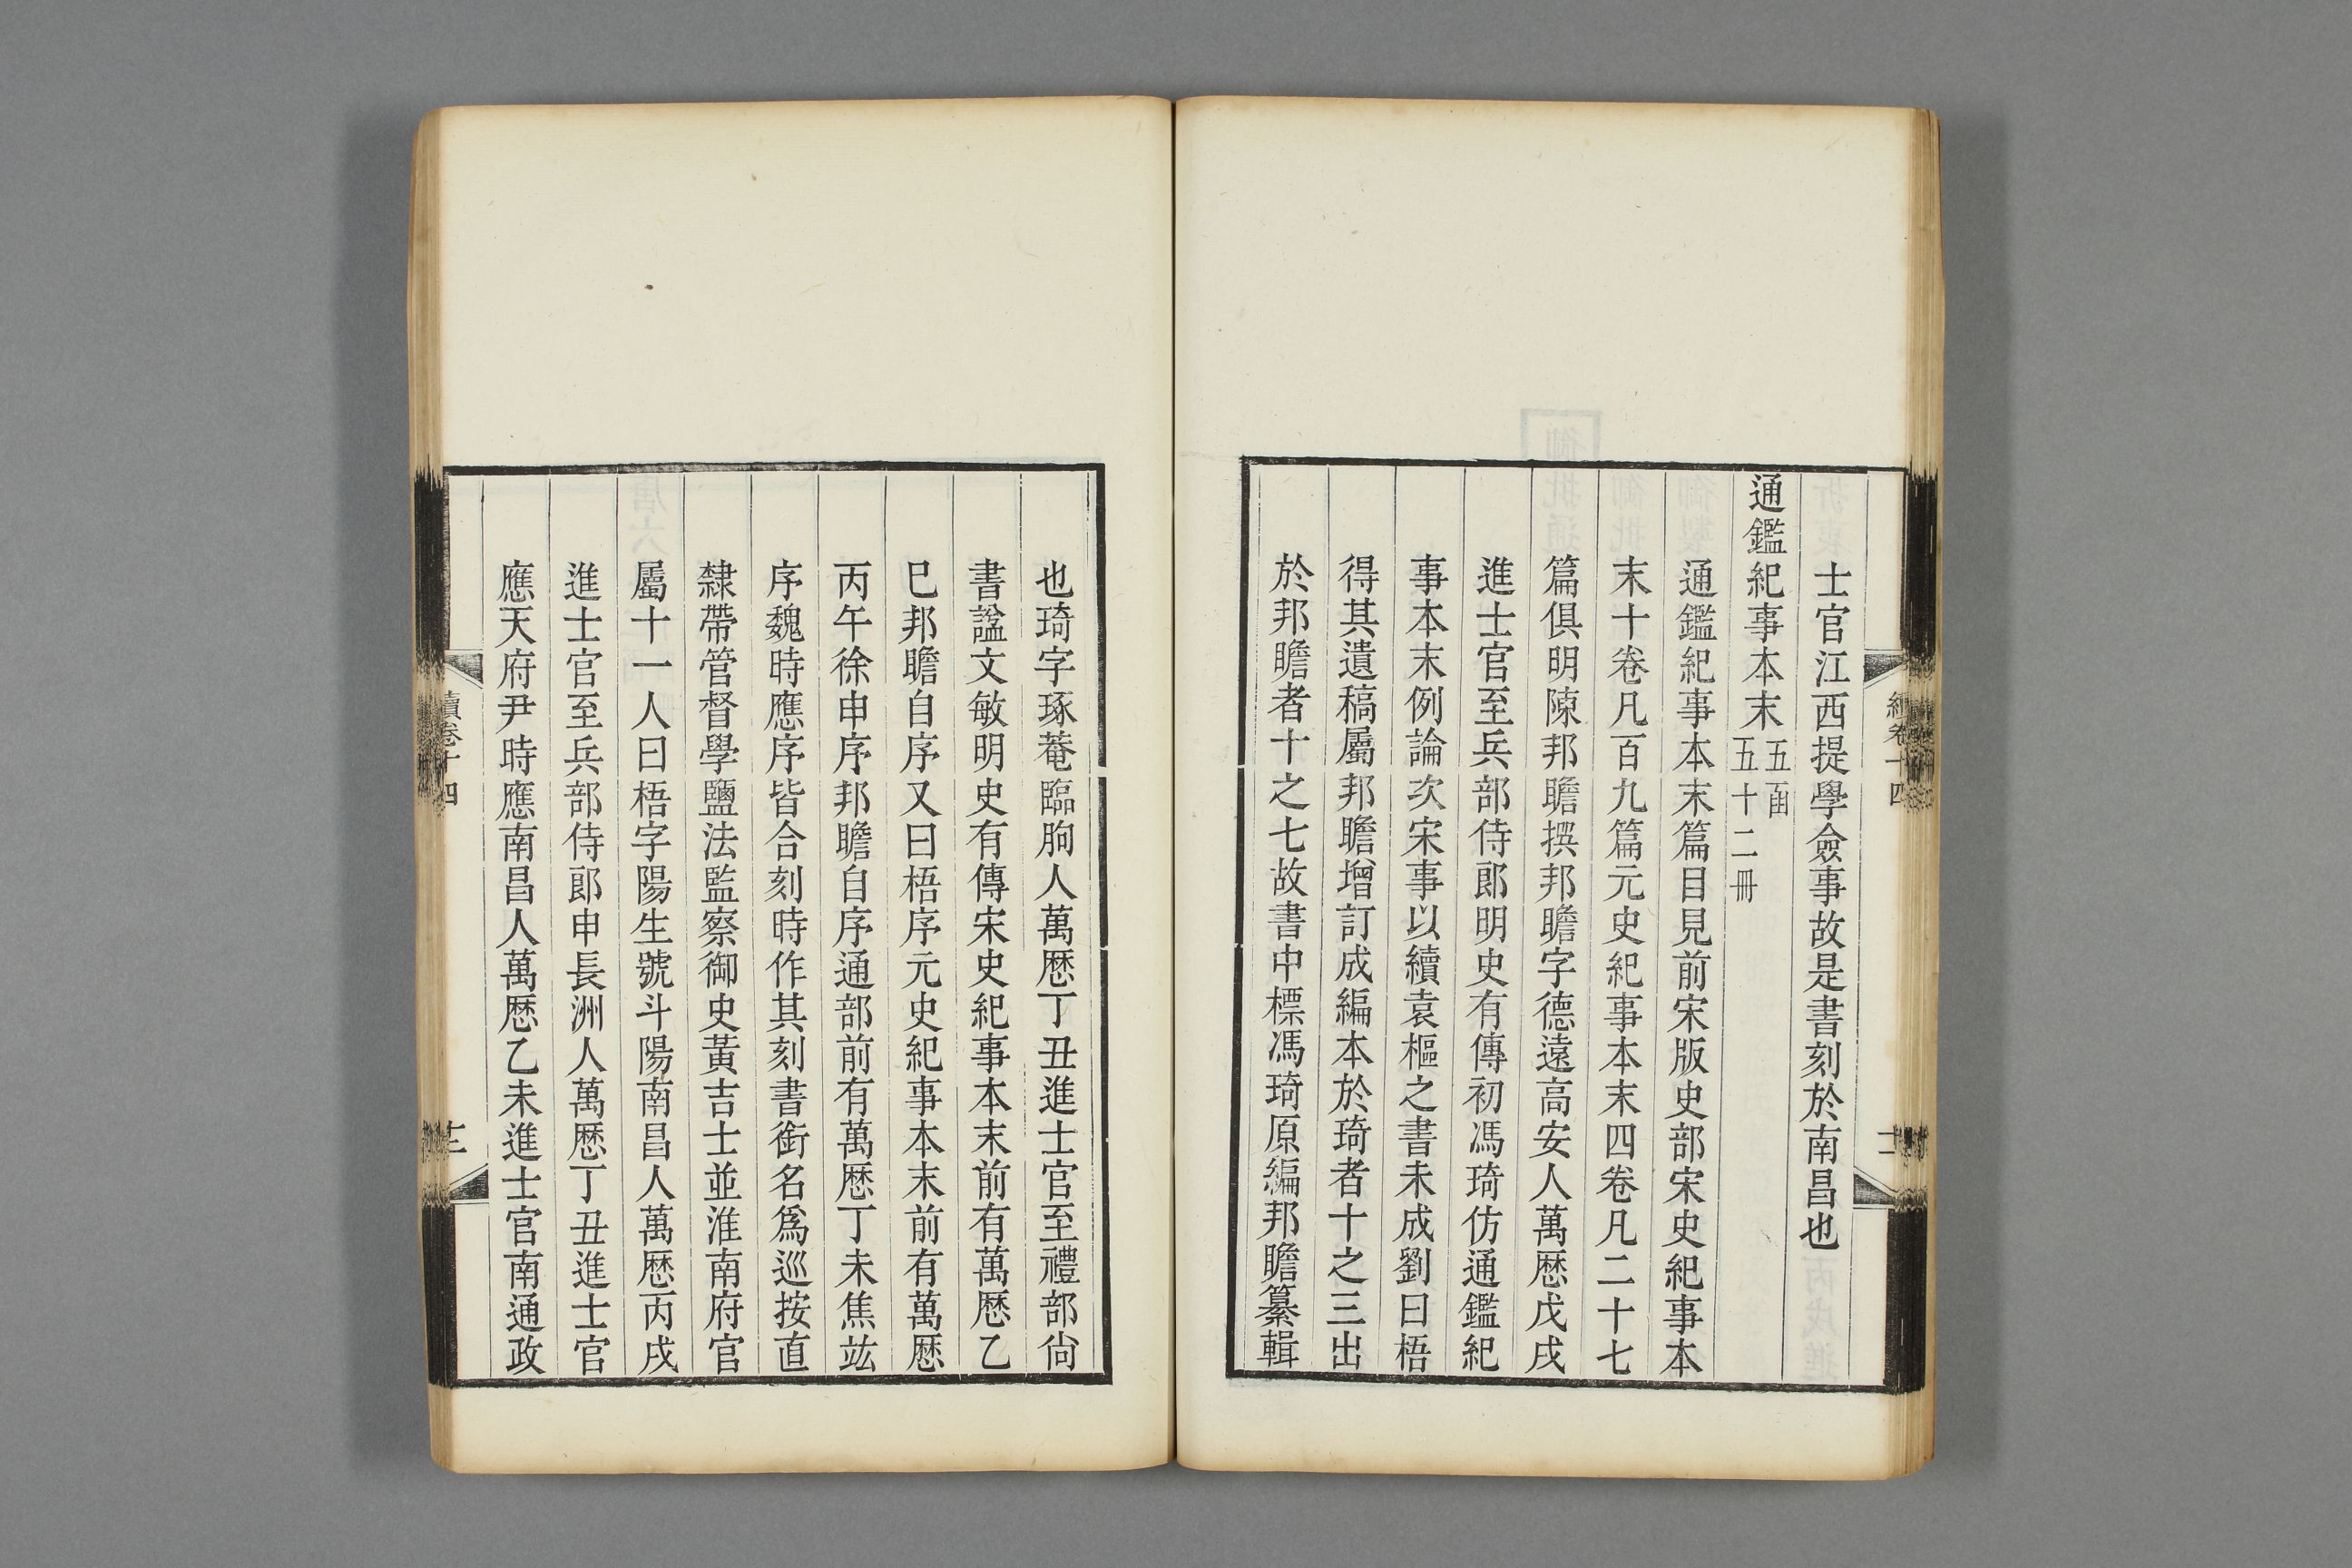 士官江西提學僉事故是書刻於南昌也
通鑑紀事本末五函五十二冊
通鑑紀事本末篇目見前宋版史部宋史紀事本
末十卷凡百九篇元史紀事本末四卷凡二十七
篇俱明陳邦瞻撰邦瞻字德遠高安人萬厯戊戌
進士官至兵部侍郎明史有傳初馮琦仿通鑑紀
事本末例論次宋事以續袁樞之書未成劉曰梧
得其遺稿屬邦瞻增訂成編本於琦者十之三出
於邦瞻者十之七故書中標馮琦原編邦瞻纂輯
也琦字琢菴臨朐人萬厯丁丑進士官至禮部尙
書諡文敏明史有傳宋史紀事本末前有萬厯乙
巳邦瞻自序又曰梧序元史紀事本末前有萬厯
丙午徐申序邦瞻自序通部前有萬厯丁未焦竑
序魏時應序皆合刻時作其刻書銜名爲巡按直
隸帶管督學鹽法監察御史黃吉士並淮南府官
屬十一人曰梧字陽生號斗陽南昌人萬厯丙戌
進士官至兵部侍郎申長洲人萬厯丁丑進士官
應天府尹時應南昌人萬厯乙未進士官南通政
續卷十四